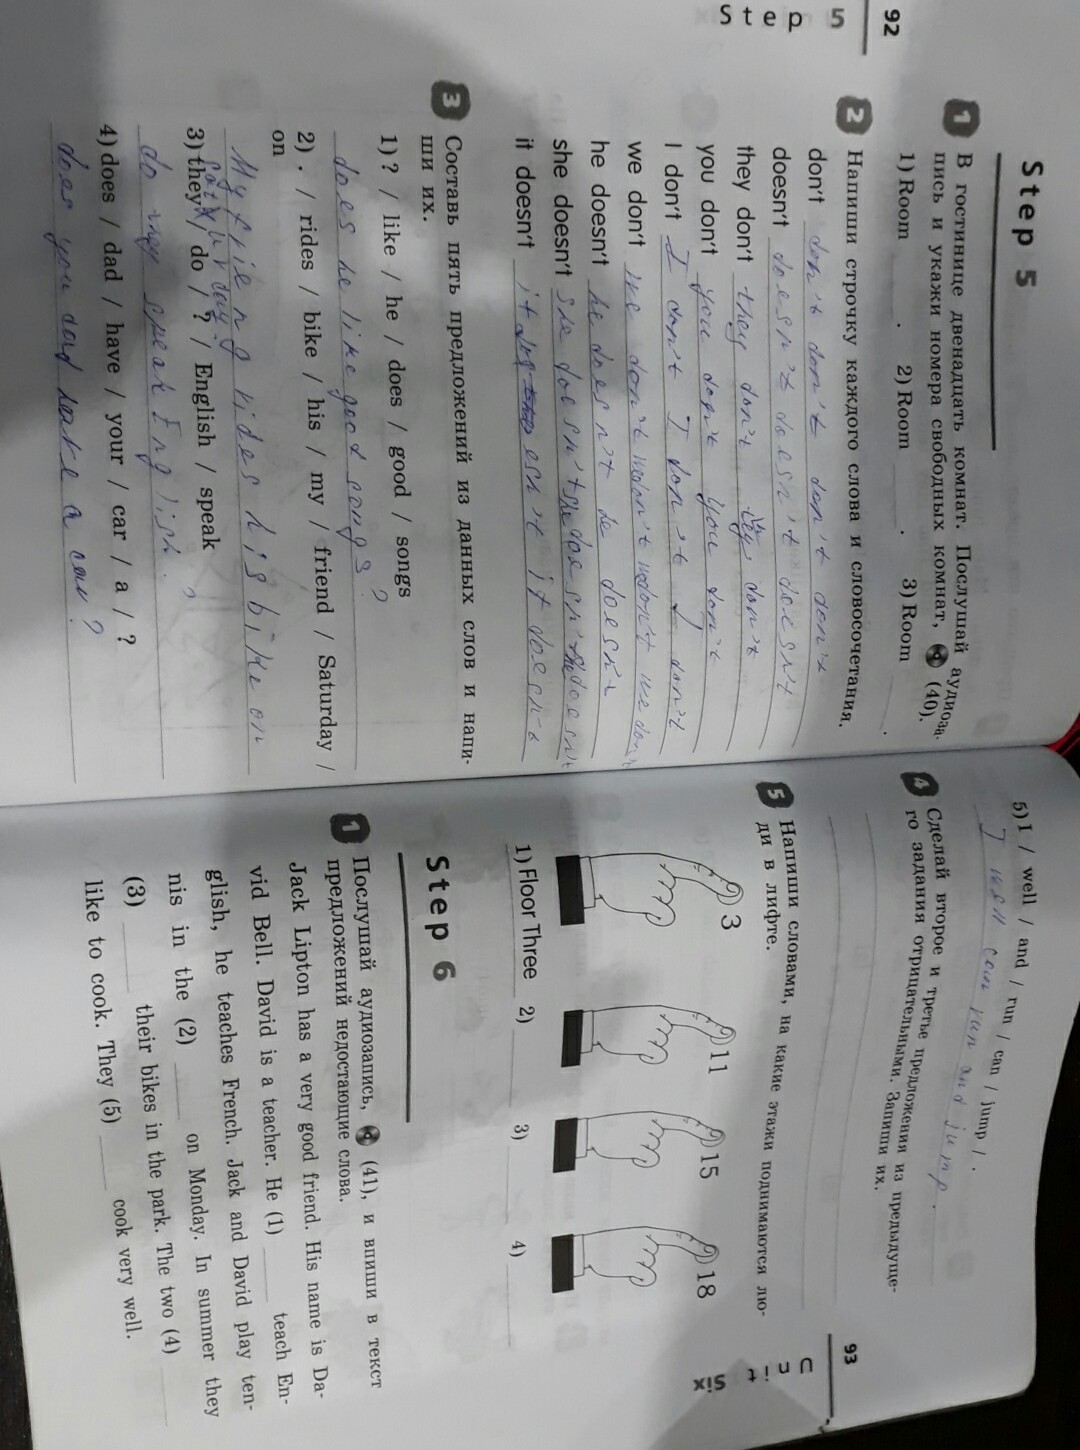 92
Step 5
Step 5
1 В гостинице двенадцать комнат. Послушай аудиоза-
пись и укажи номера свободных комнат, (40).
1) Room ____. 2) Room ____. 3) Room ____.
2 Напиши строчку каждого слова и словосочетания.
don't don't don't don't don't
doesn't doesn't doesn't doesn't
they don't they don't they don't
you don't you don't you don't
I don't I don't I don't I don't
we don't we don't we don't we don't we don't
he doesn't he doesn't he doesn't
she doesn't she doesn't she doesn't she doesn't
it doesn't it doesn't it doesn't
3 Составь пять предложений из данных слов и напи-
ши их.
1) ? / like / he / does / good / songs
does he like good songs?
2) . / rides / bike / his / my / friend / Saturday /
on
My friend rides his bike on
3) they / do / ? / English / speak
do they speak English.?
4) does / dad / have / your / car / a / ?
does you dad have a car?
93
Unit Six
5) I / well / and / run / can / jump / .
I well can run and jump.
4 Сделай второе и третье предложения из предыдуще-
го задания отрицательными. Запиши их.
5 Напиши словами, на какие этажи поднимаются лю-
ди в лифте.
3 11 15 18
1) Floor Three 2) ____ 3) ____ 4) ____
Step 6
1 Послушай аудиозапись, (41), и впиши в текст
предложений недостающие слова.
Jack Lipton has a very good friend. His name is Da-
vid Bell. David is a teacher. He (1) ____ teach En-
glish, he teaches French. Jack and David play ten-
nis in the (2) ____ on Monday. In summer they
(3) ____ their bikes in the park. The two (4) ____
like to cook. They (5) ____ cook very well.